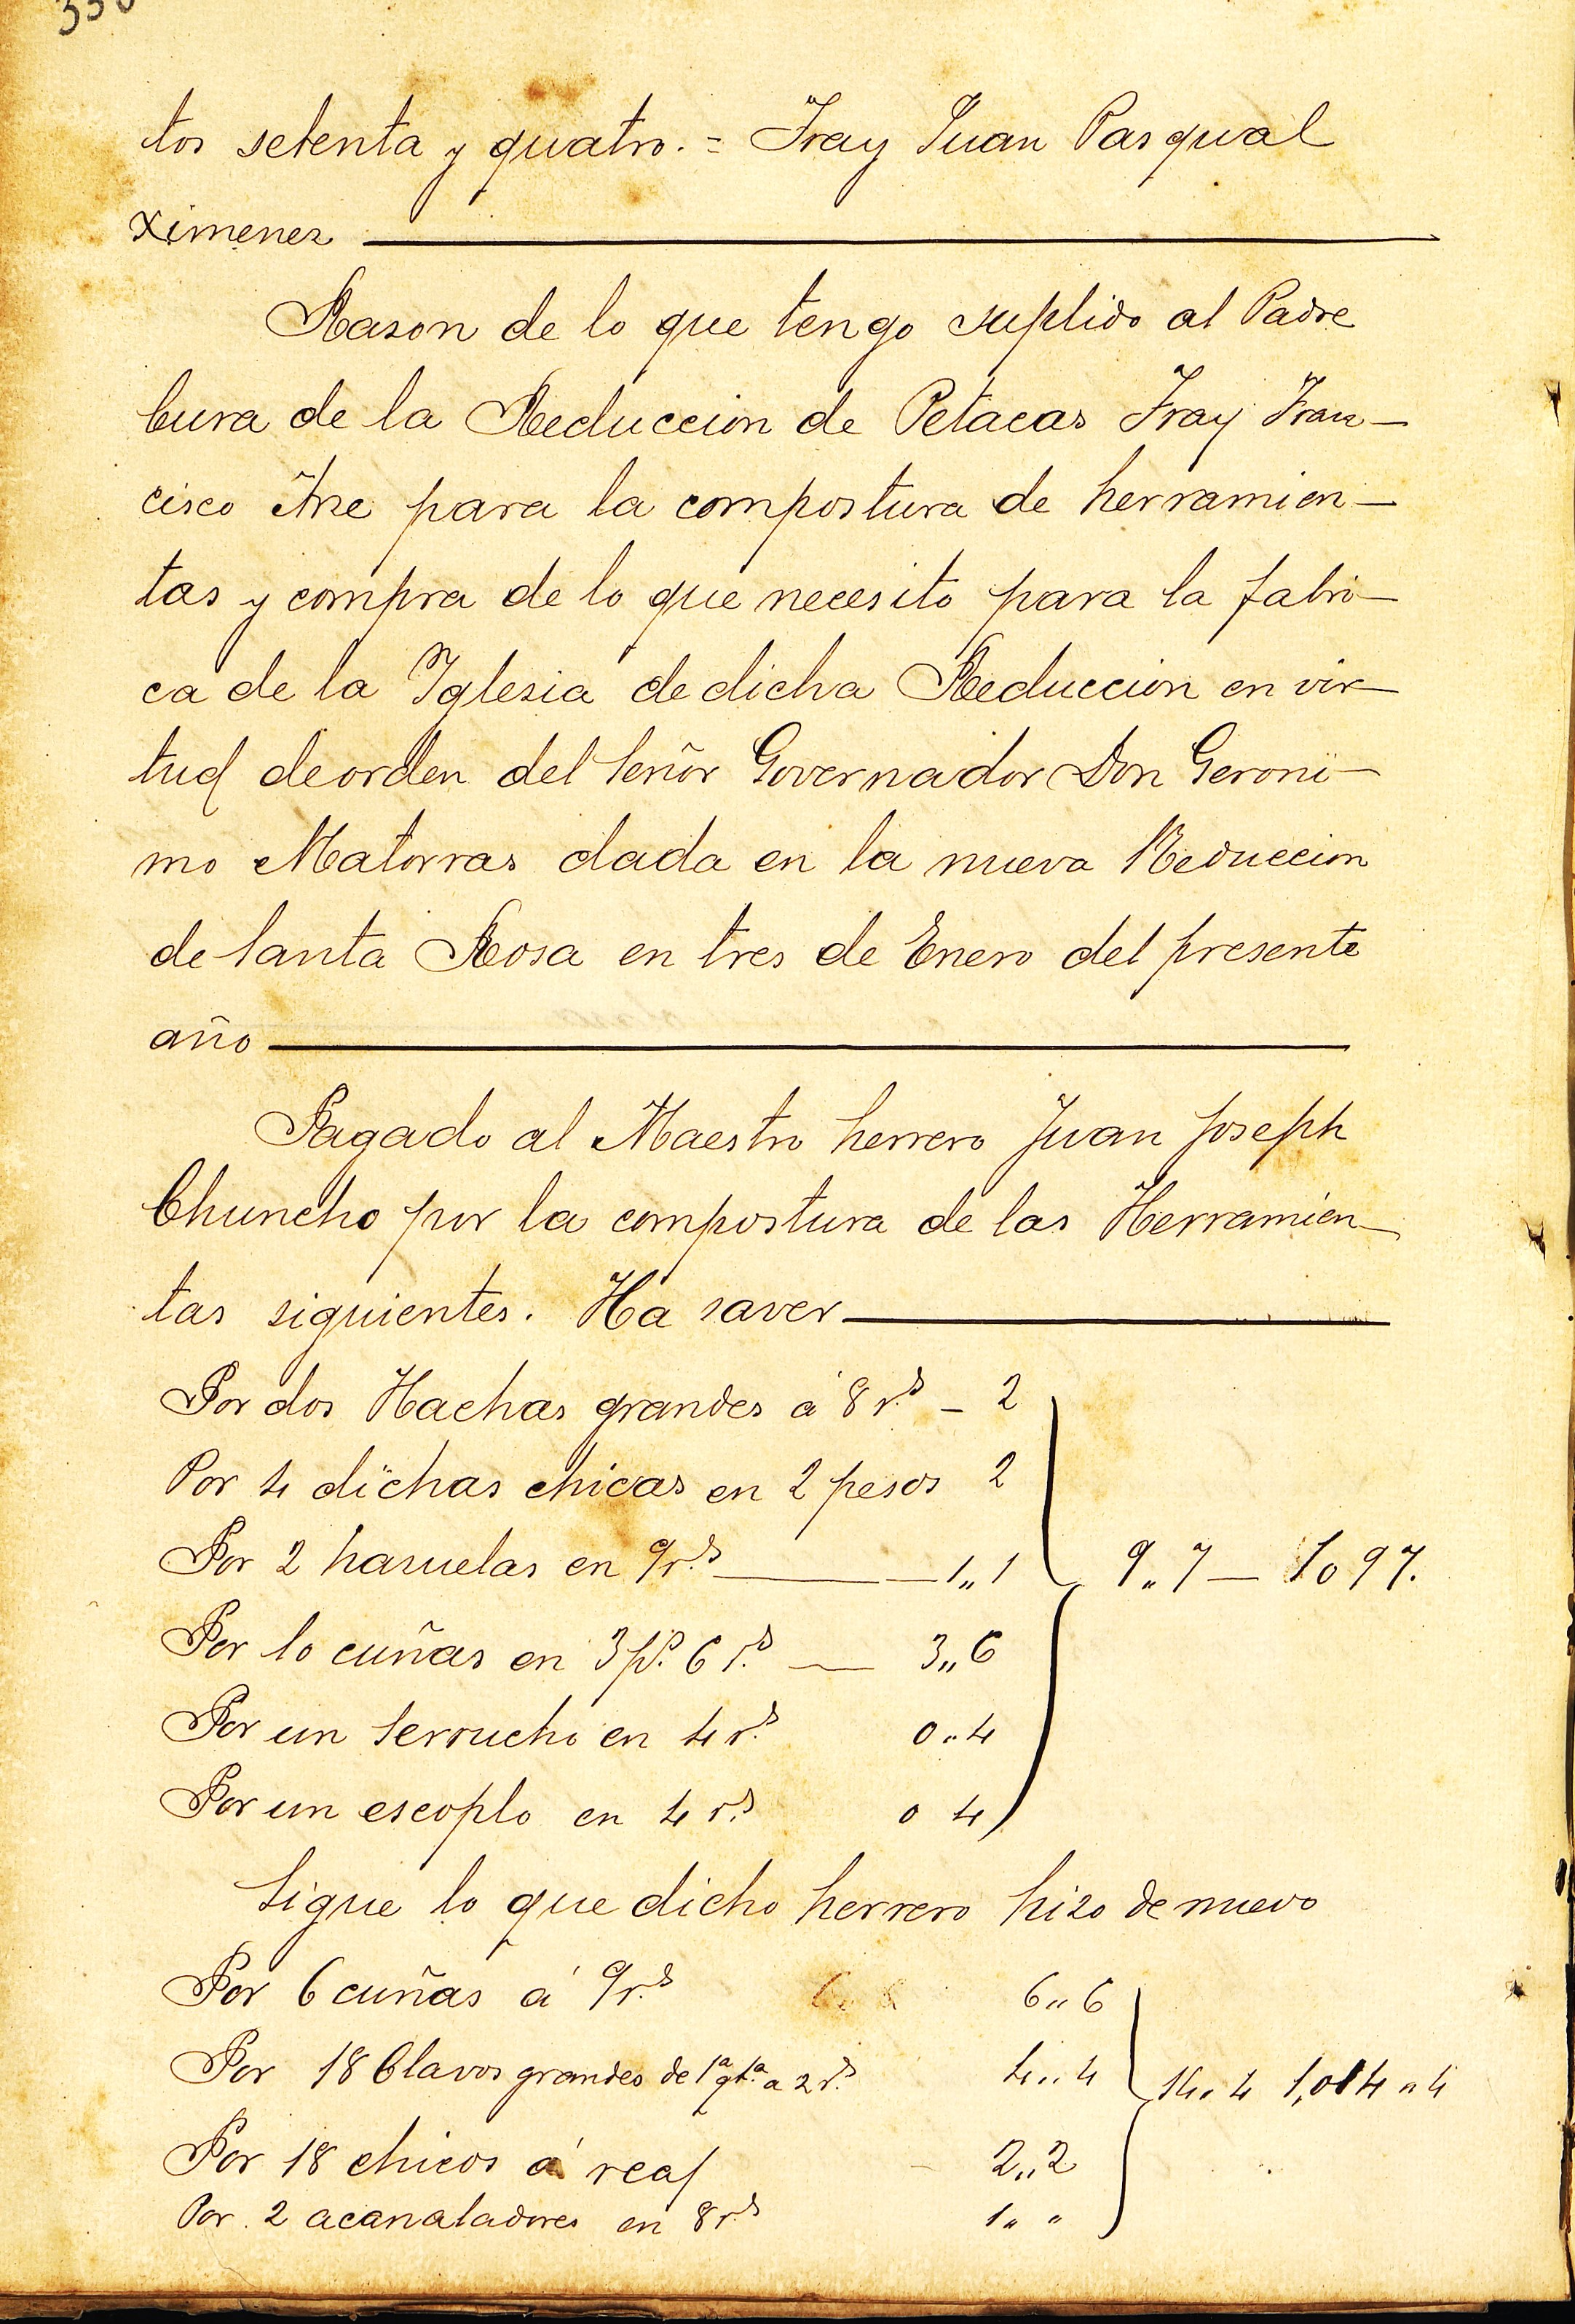 tos setenta y quatro. = Fray Juan Pasqual
Ximenez
Rason de lo que tengo suplido al Padre
Cura de la Reduccion de Petacas Fray Fran-
cisco para la compostura de herramien-
tas y compra de lo que necesito para la fabri-
ca de la Iglesia de dicha Reduccion en vir-
tud de orden del Señor Governador Don Geroni-
mo Matorras dada en la nueva Reduccion
de Santa Rosa en tres de Enero del presente
año
Pagado al Maestro herrero Juan Joseph
Chuncho por la compostura de las Herramien-
tas siguientes. Ha saver
Por dos Hachas grandes á 8 r.s - 2
Por 4 dichas chicas en 2 pesos 2
Por 2 hazuelas en 9 r.s 1,,1 9,,7 - 1097.
Por 10 cuñas en 3 p.s 6 r.s 3,,6
Por un Serrucho en 4 r.s 0,,4
Por un escoplo en 4 r.s 0 4
Sigue lo que dicho herrero hizo de nuevo
Por 6 cuñas á 9 r.s 6,,6
Por 18 Clavos grandes de a 2 r.s 4,,4 14,,4 1,014,,4
Por 18 chicos á real 2,,2
Por 2 acanaladores en 8 r.s 1,, "